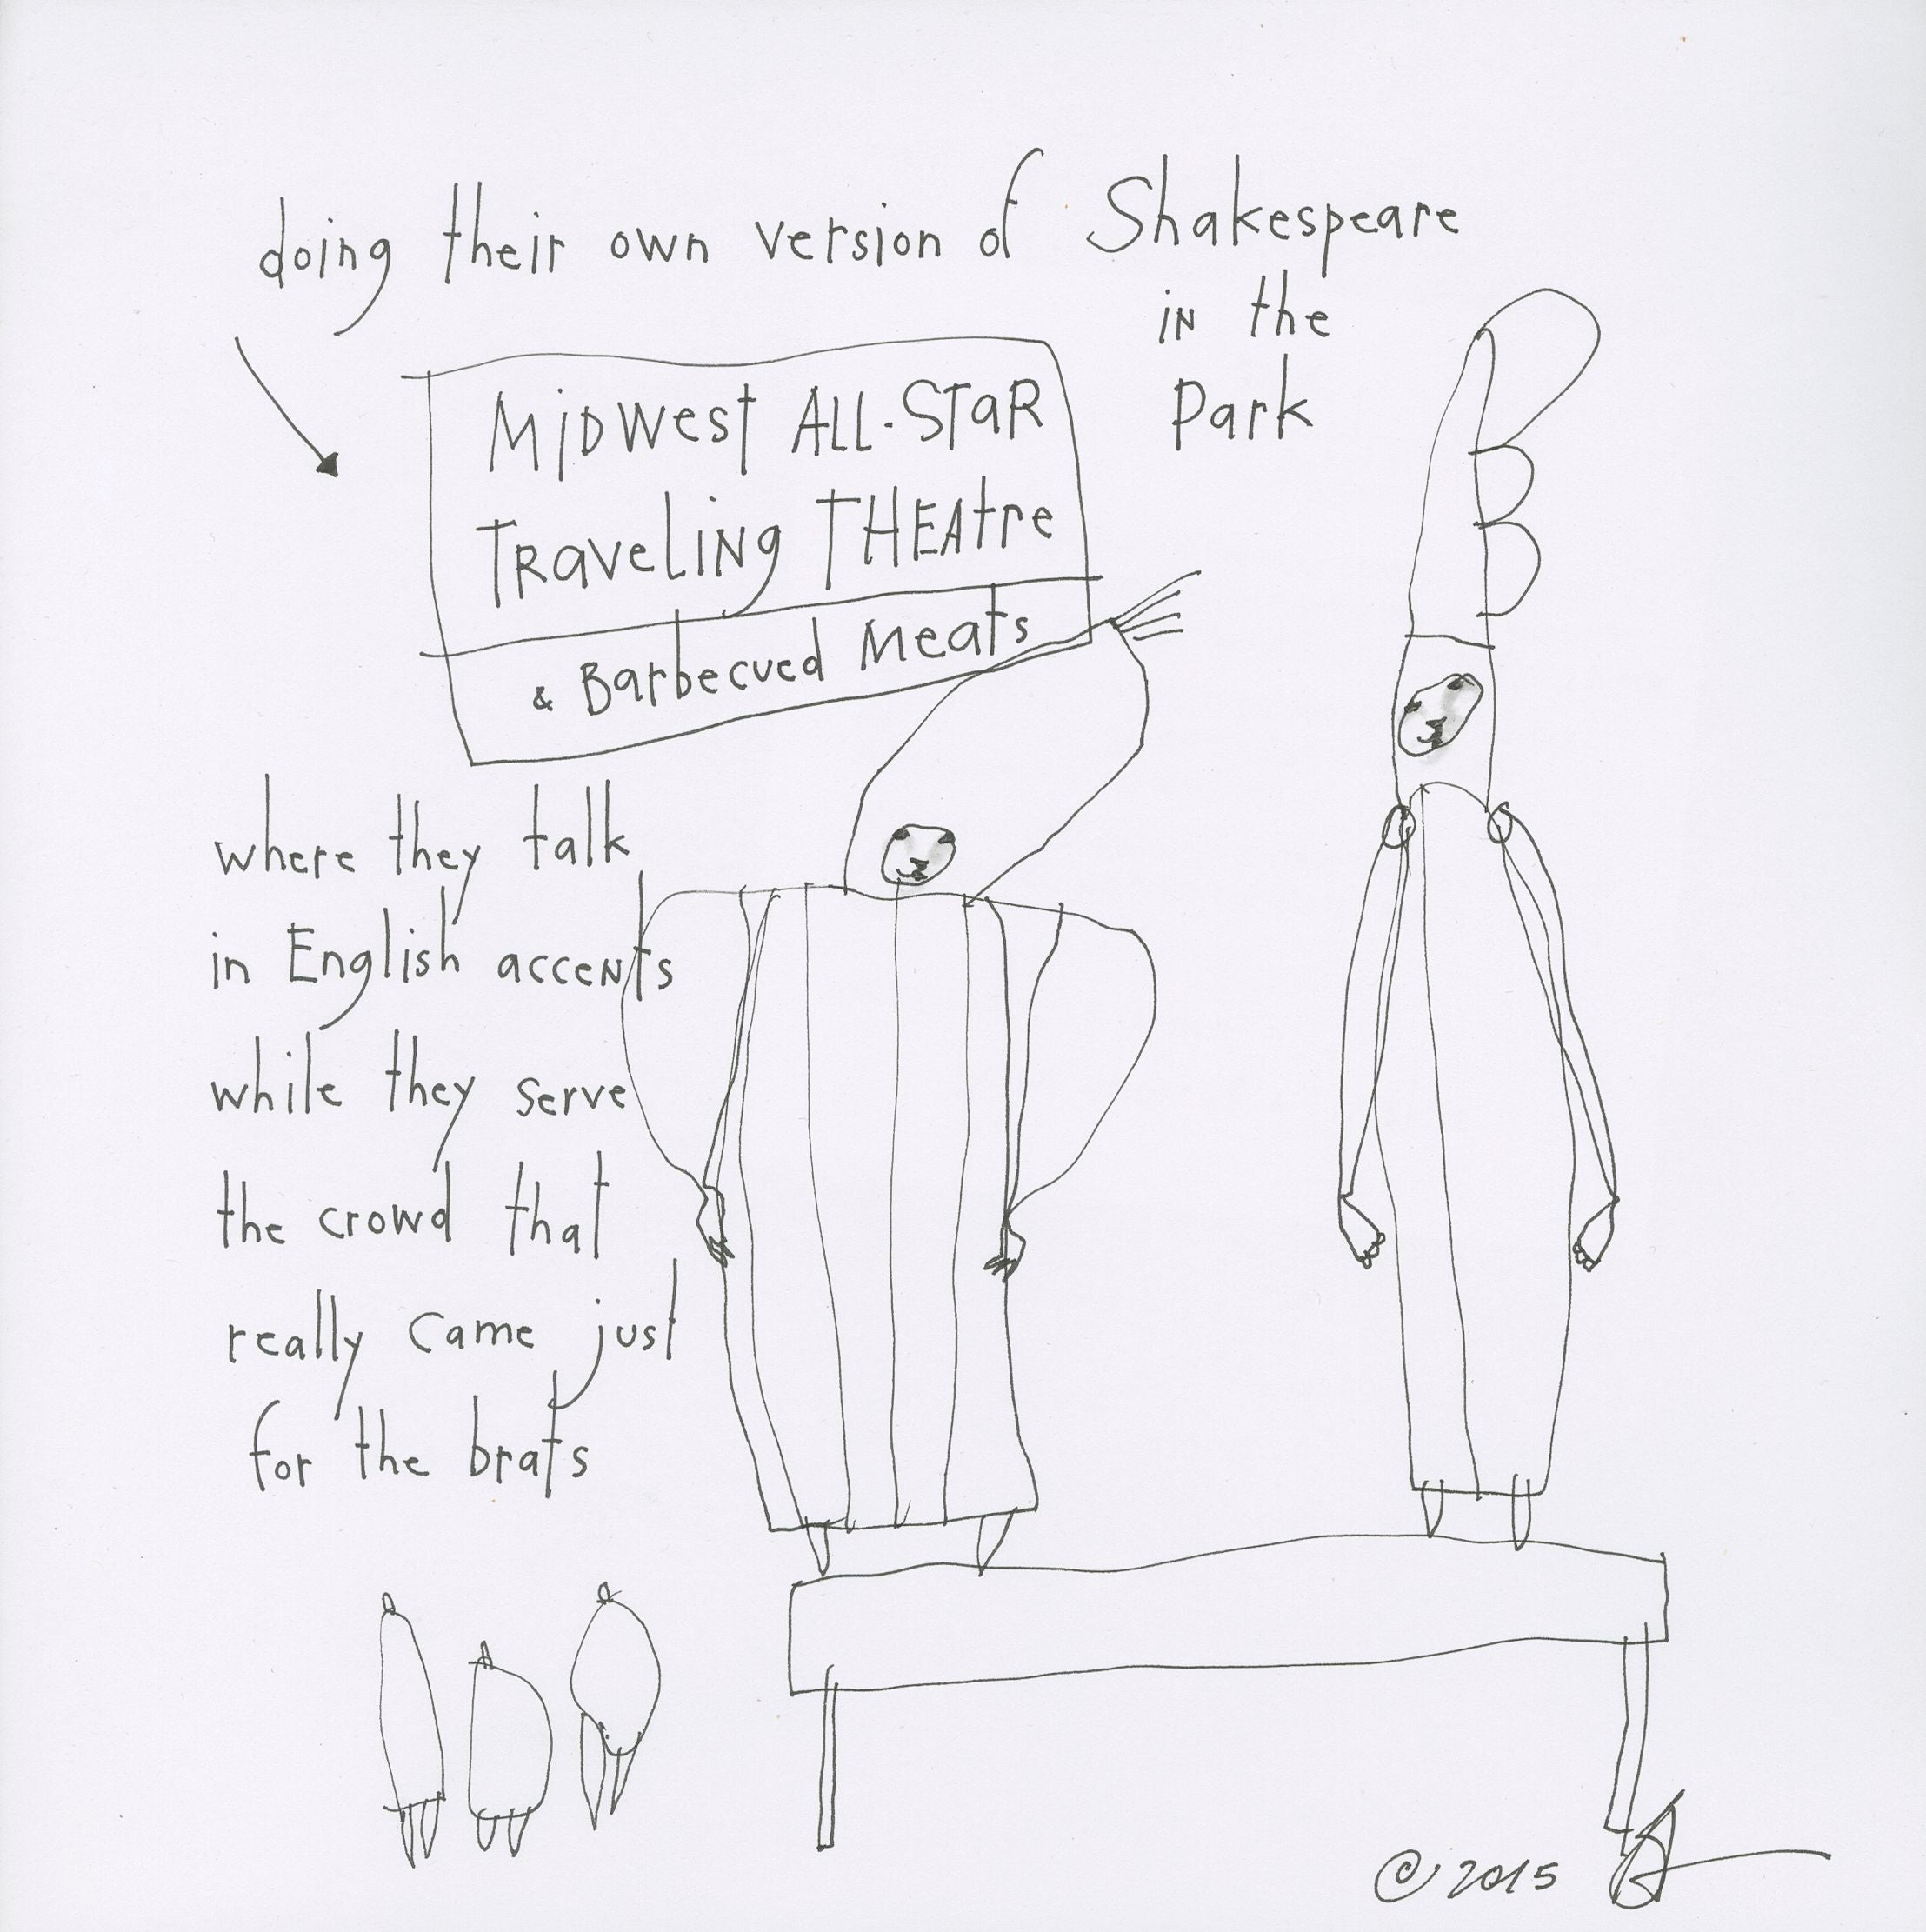 doing their own version of Shakespeare
in the
Park
MiDWest ALL-STaR
TRaveLiNg THEAtre
& Barbecued Meats
where they talk
in English accents
while they serve
the crowd that
really came just
for the brats
© 2015